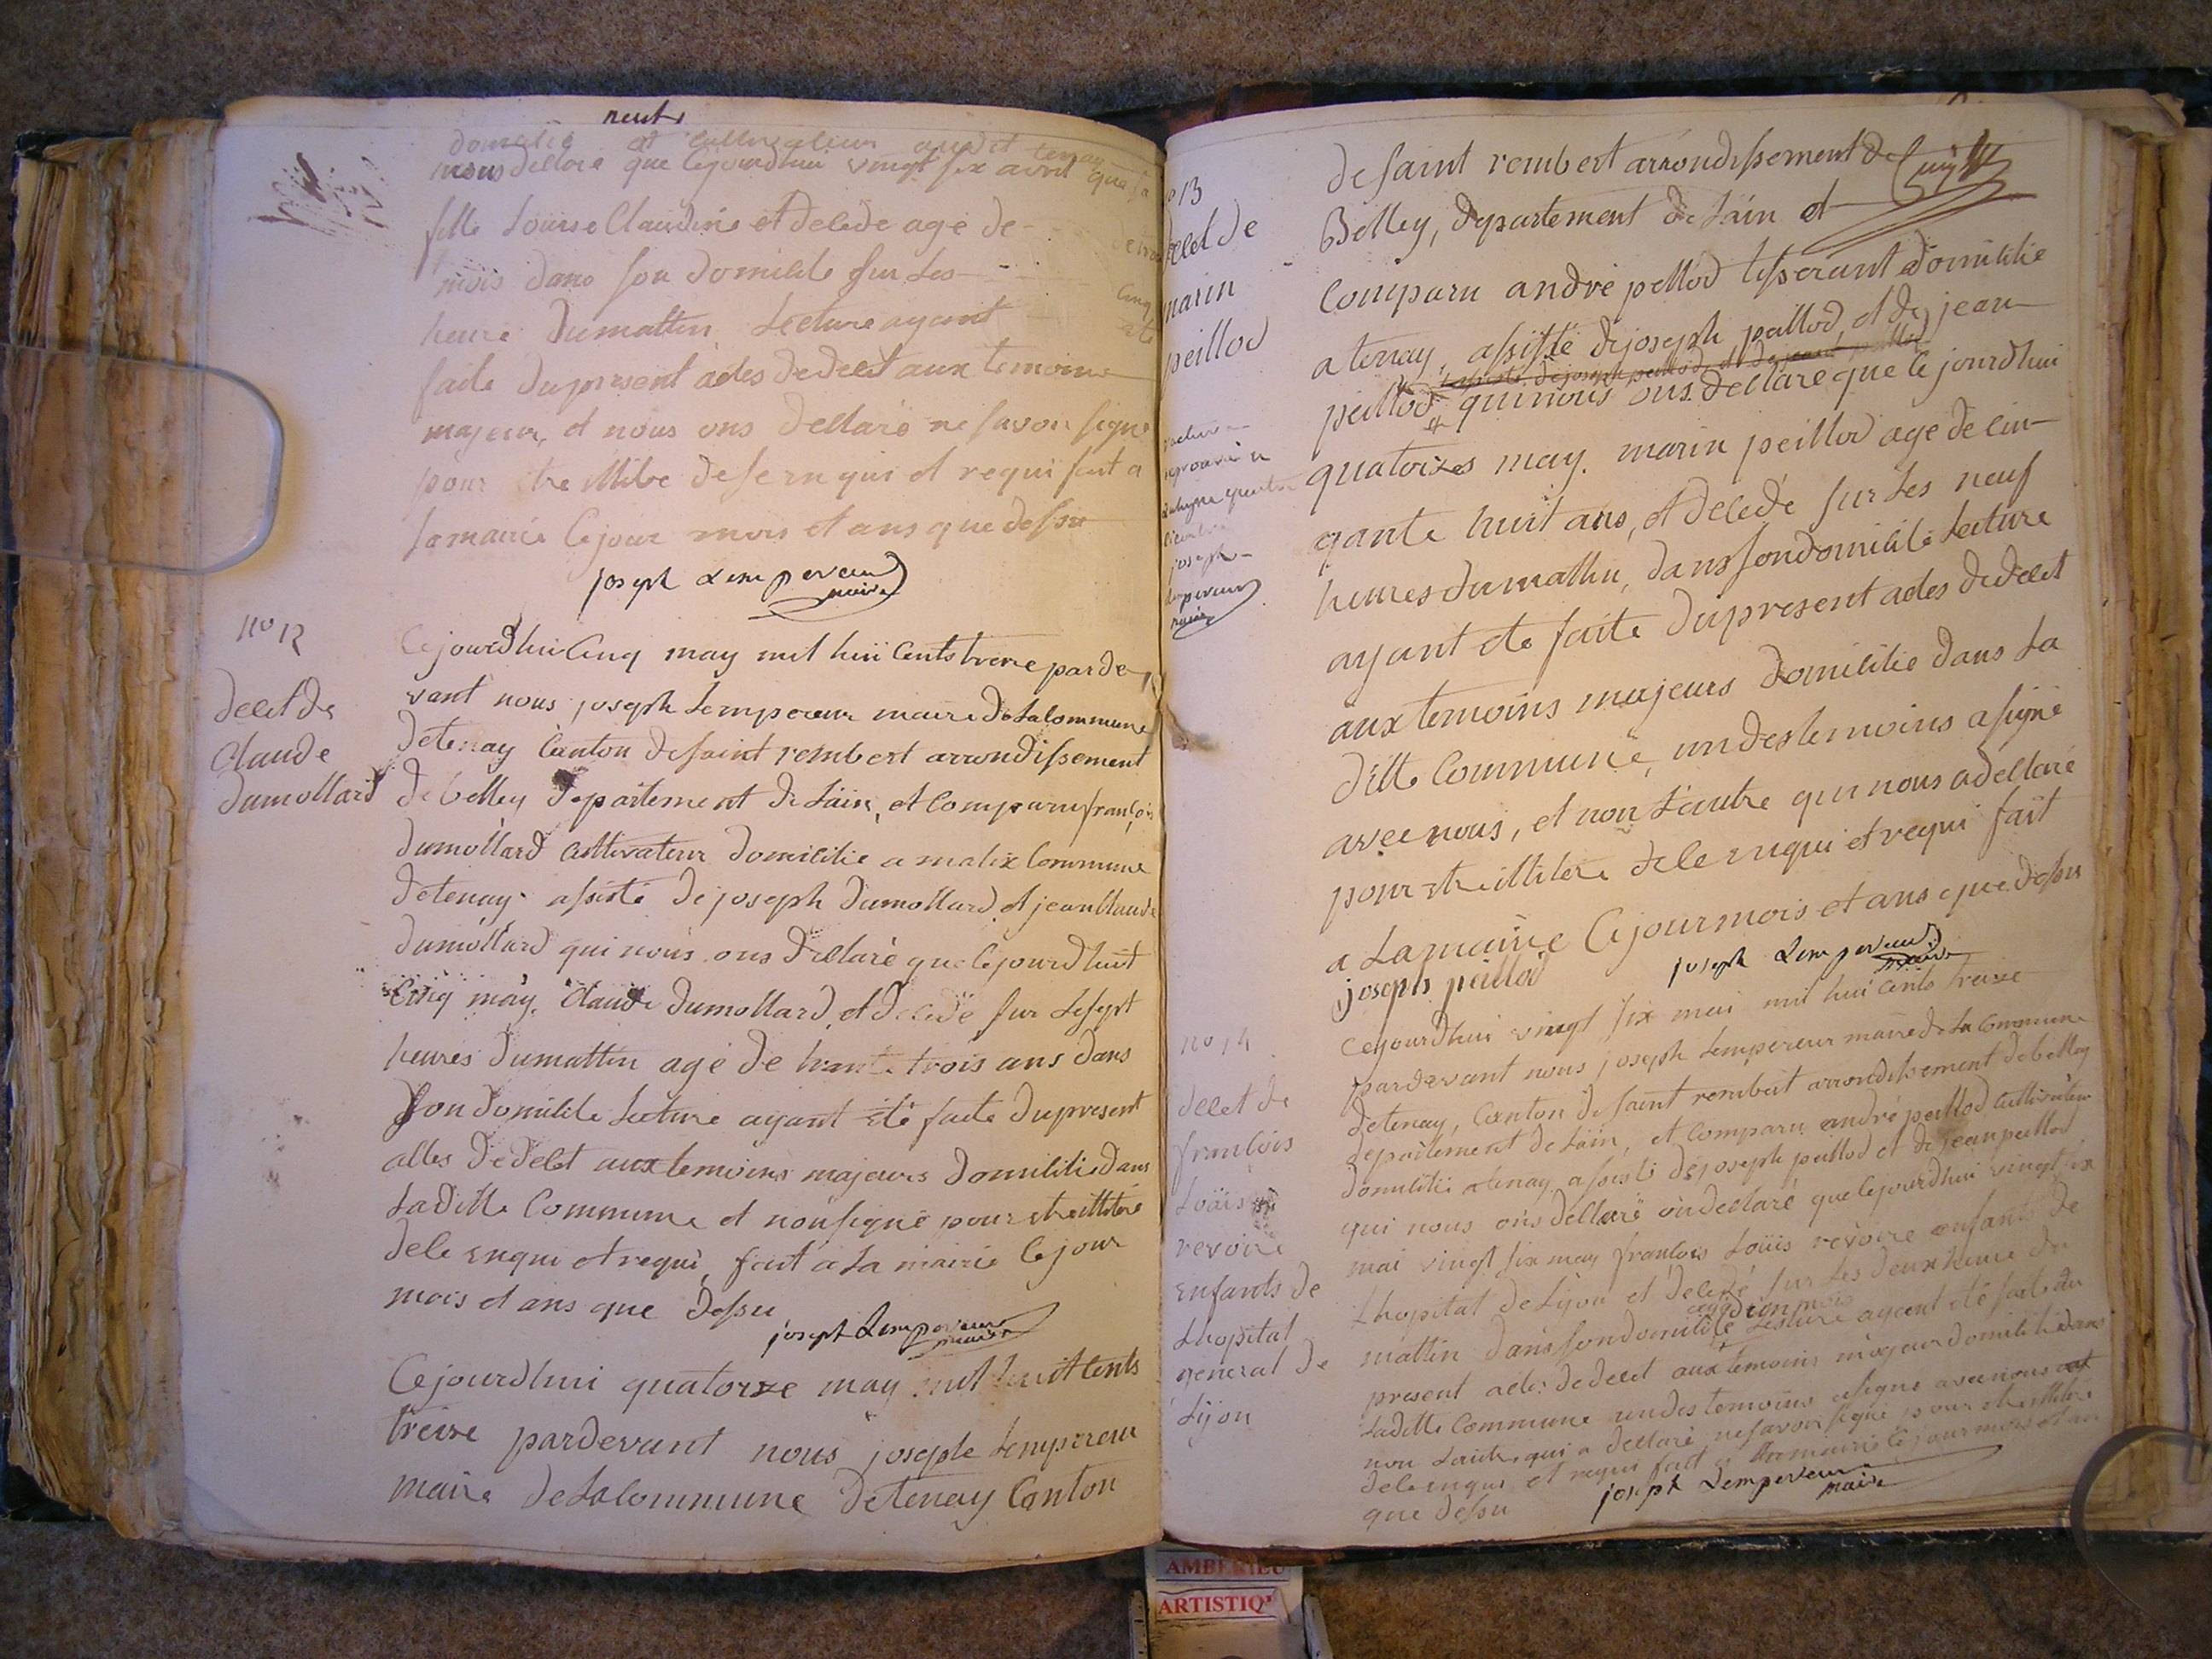 neuf
domicilié et cultivateur audit tenay
nous dellare que cejourdhui vingt six avril que sa
fille Louise Claudine et decede agé de
mois dans son domicile sur Les
cinq
heure dumattin, Lecture ayant eté
faite dupresent actes dedecet aux temoins
majeur, et nous ons dellaré ne savoir signe
pour etre illiter de ce enqui et requi fait a
Lamairie Cejour mois et ans que dessu
joseph Lempereur
maire
no 12
decet de
Claude
dumollard
Cejourdhui Cinq may mil huit Cents treize parde
vant nous joseph Lempereur maire de La Commune
detenay Canton desaint rembert arrondissement
de belley departement de Lain, et Comparu françois
dumollard Cultivateur domicilie a malix Commune
detenay assisté de joseph dumollard et jean Claude
dumollard qui nous ons dellaré que Cejourdhuit
Cinq may, Claude dumollard, et decede sur Lesept
heures dumattin agé de trante trois ans dans
son domicile Lecture ayant eté faite dupresent
actes dedecet aux temoins majeurs domicilie dans
Laditte Commune et nonsigné pour etre illiteré
dece enqui et requi, fait a La mairie Cejour
mois et ans que dessu
joseph Lempereur
maire
Cejourdhui quatorze may mil huit Cents
treize pardevant nous joseph Lempereur
maire de La Commune detenay Canton
no 13
decet de
marin
peillod
de saint rembert arrondissement de
Belley, departement de Lain et
Comparu andré peillod tisserant domicilie
a tenay, assisté de joseph peillod, et de jean
assisté de joseph peillod et de jean peillod
peillod qui nous ons dellaré que Cejourdhui
quatorzes may. marin peillod age de cin-
quante huit ans, et decedé sur Les neuf
heures dumattin, dans son domicile Lecture
ayant eté faite dupresent actes dedecet
aux temoins majeurs domicilie dans La
ditte Commune, un des temoins a signé
avec nous, et non Lautre qui nous adellaré
pour etre illitere dece enqui et requi fait
a Lamairie Cejour mois et ans que dessu
joseph peillod
joseph Lempereur
maire
joseph
Lempereur
maire
no 14
decet de
françois
Loüis
revoire
enfants de
Lhopital
general de
Lÿon
Cejourdhui vingt six mai mil hui Cents treize
pardevant nous joseph Lempereur maire de La Commune
detenay, Canton de saint rembert arrondissement debelley
departement de Lain, et Comparu andré peillod Cultivateur
domicilié atenay assisté de joseph peillod et de jean peillod
qui nous ons dellaré ondeclaré que Cejourdhui vingt six
mai vingt six may françois Loüis revoire enfants de
Lhopital de Lÿon et decedé sur Les deux heure du
agé dun mois
mattin dans son domicile Lecture ayant eté faite du
present actes dedecet aux temoins majeur domicilié dans
Laditte Commune undes temoins asigné avec nous et
non Lautre qui a dellaré ne savoir signé pour etre illiteré
dece enqui et requi fait a Lamairie Cejour mois et an
que dessu
joseph Lempereur
maire
AMBERIEU
ARTISTIQ'